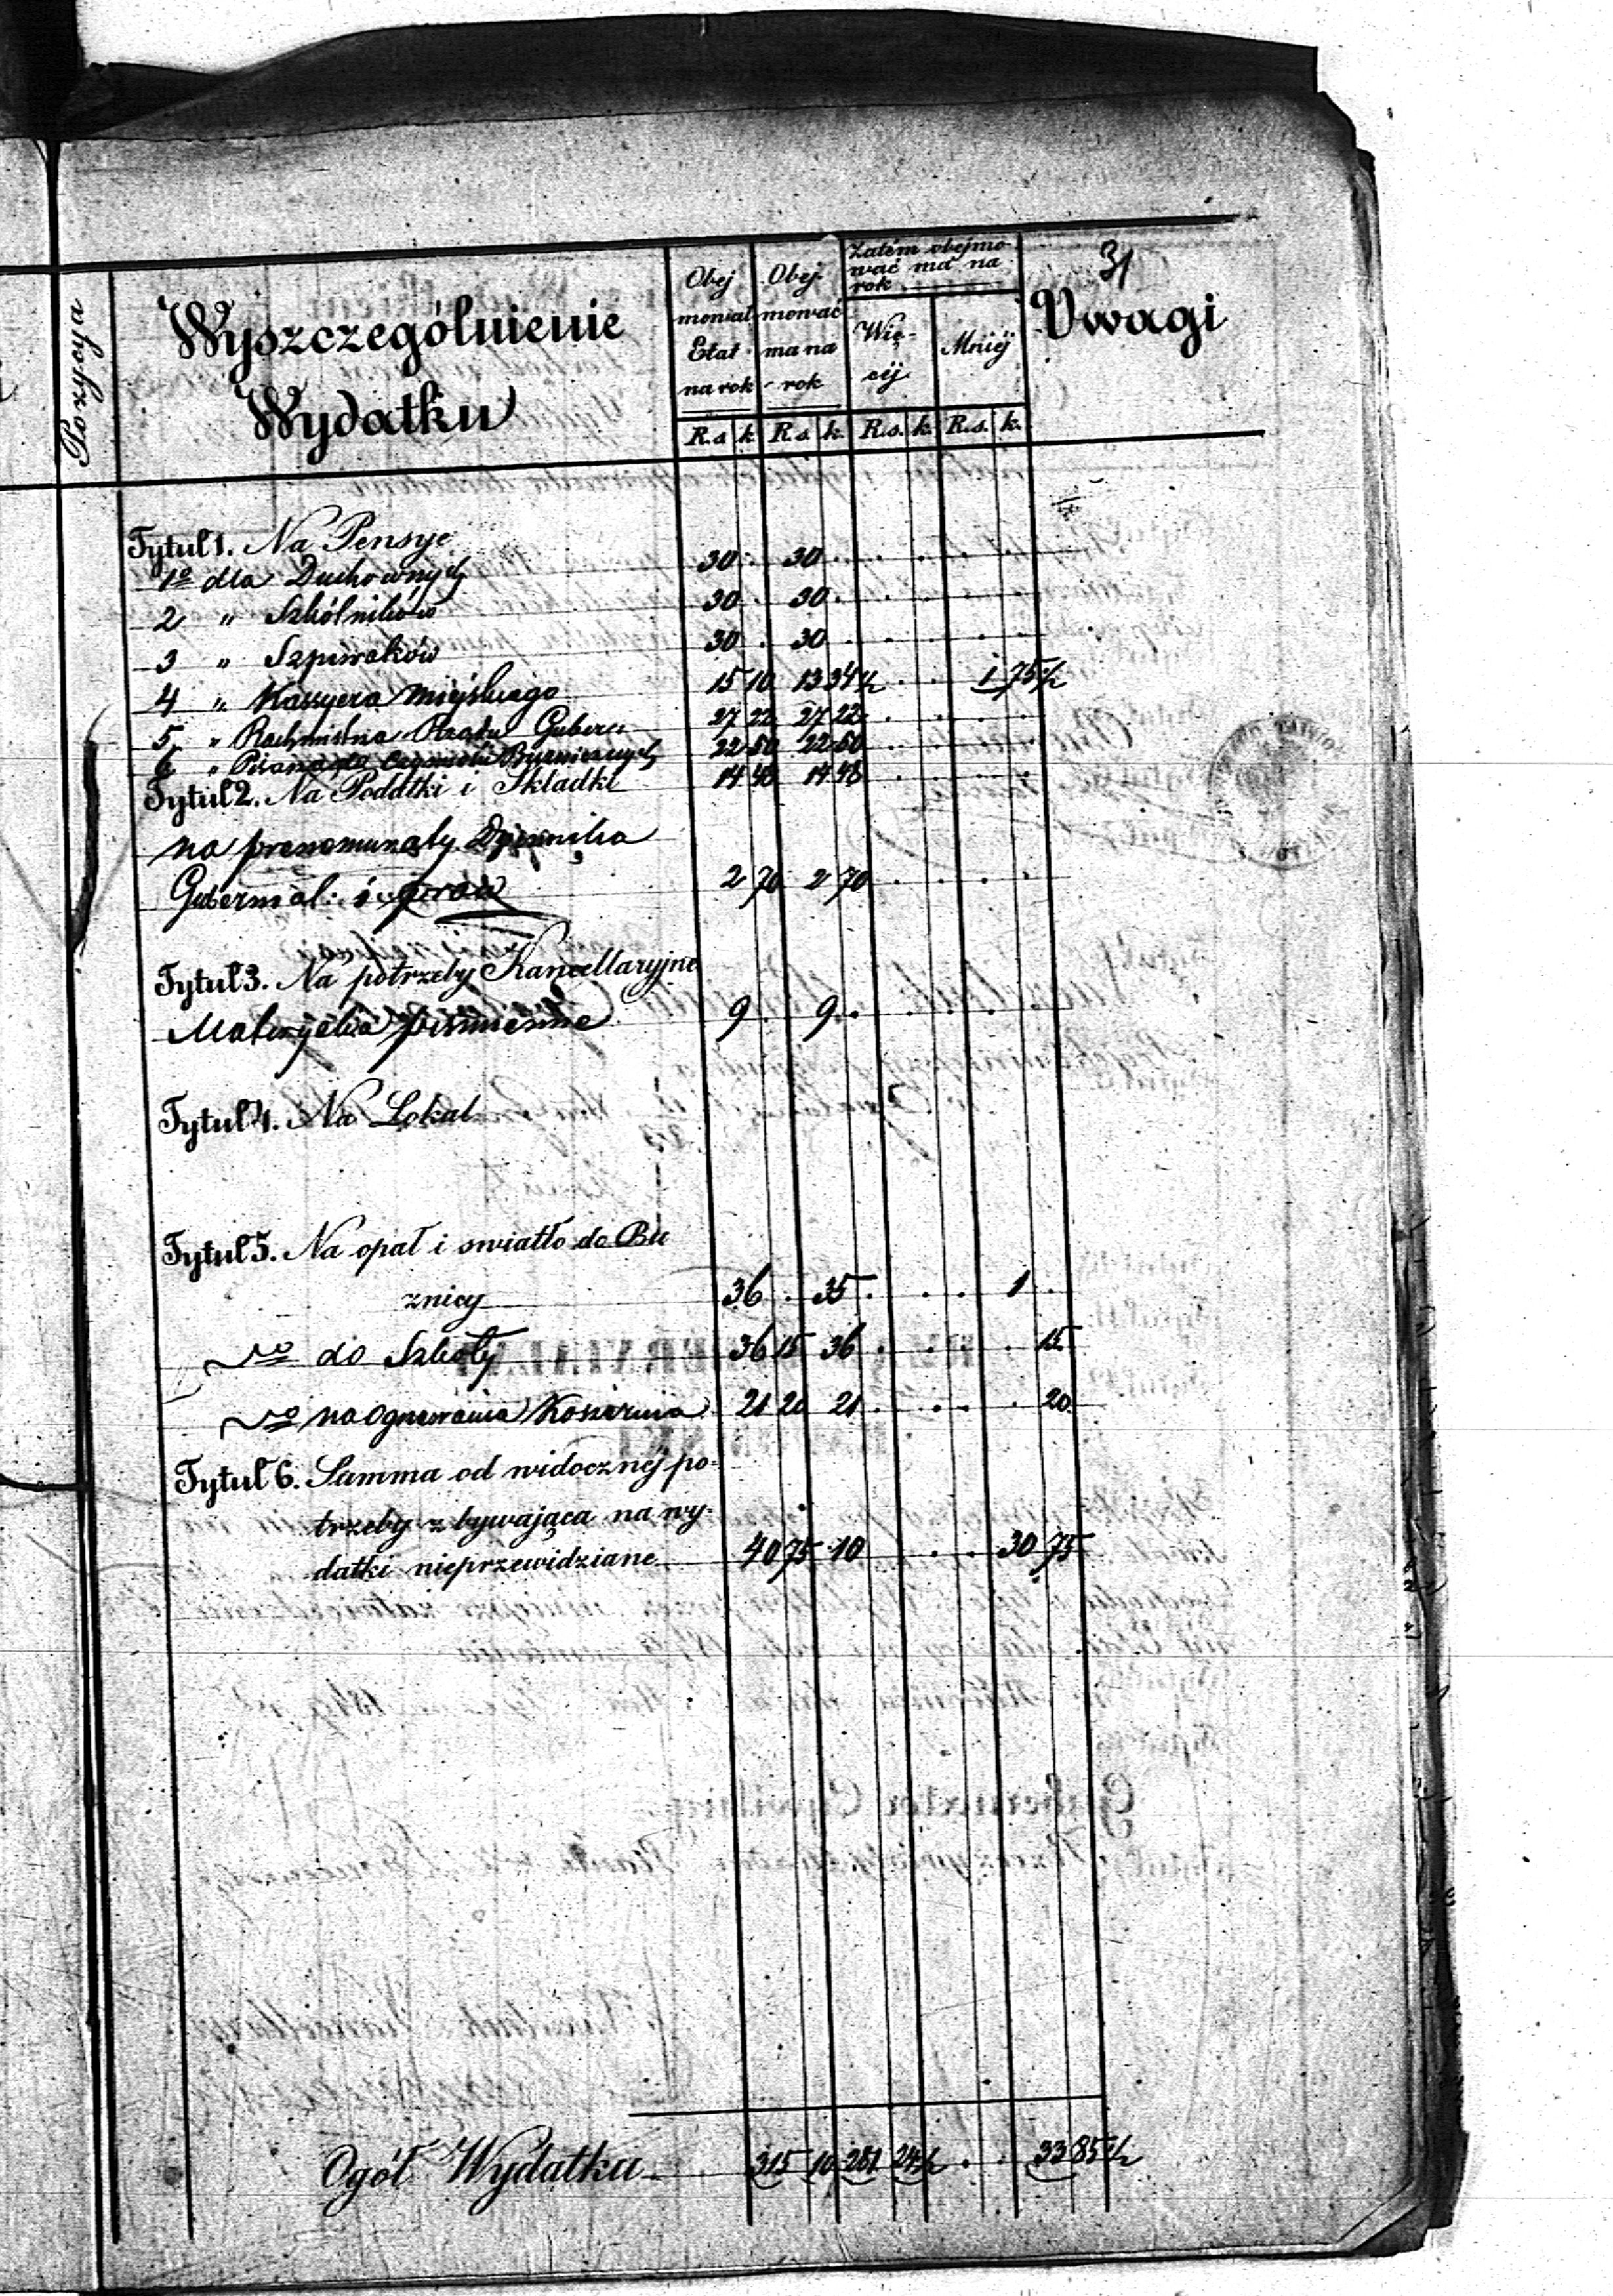 31
Pozycya
Wyszczególnienie
Wydatku
Obej
moniał
Etat
na rok
Obej-
mować
ma na
rok
Zatém obejmo-
wać ma na
rok
Wię-
céj
Mniéj
Uwagi
R.s. k. R.s. k. R.s. k. R.s. k.
Tytuł 1. Na Pensye
1o dla Duchownych 30 . 30 .
2 " Szkólników 30 . 30 .
3 " Szpiwaków 30 . 30 .
4 " Kassyera Miejskiego 15 10 13 34½ . . 1 75½
5 " Rachmistrza Rządu Gubern 27 22 27 22
6 " Pisarza do Czynności Bużniczych 22 50 22 50
Tytuł 2. Na Podatki i Składki 14 48 14 48
na prenumeraty Dziennika
Gubernial: i praw 2 70 2 70
Tytuł 3. Na potrzeby Kancellaryjne
Materyały piśmienne 9 . 9 .
Tytuł 4. Na Lokal
Tytuł 5. Na opał i swiatło do Bu
znicy 36 . 35 . . . 1 .
do Szkoły 36 15 36 . . . . 15
na Kosiernia 21 20 21 . . . . 20
Tytuł 6. Summa od widocznéj po-
trzeby zbywająca na wy-
datki nieprzewidziane 40 75 10 . . 30 75
Ogół Wydatku 315 10 281 24½ . . 33 85½